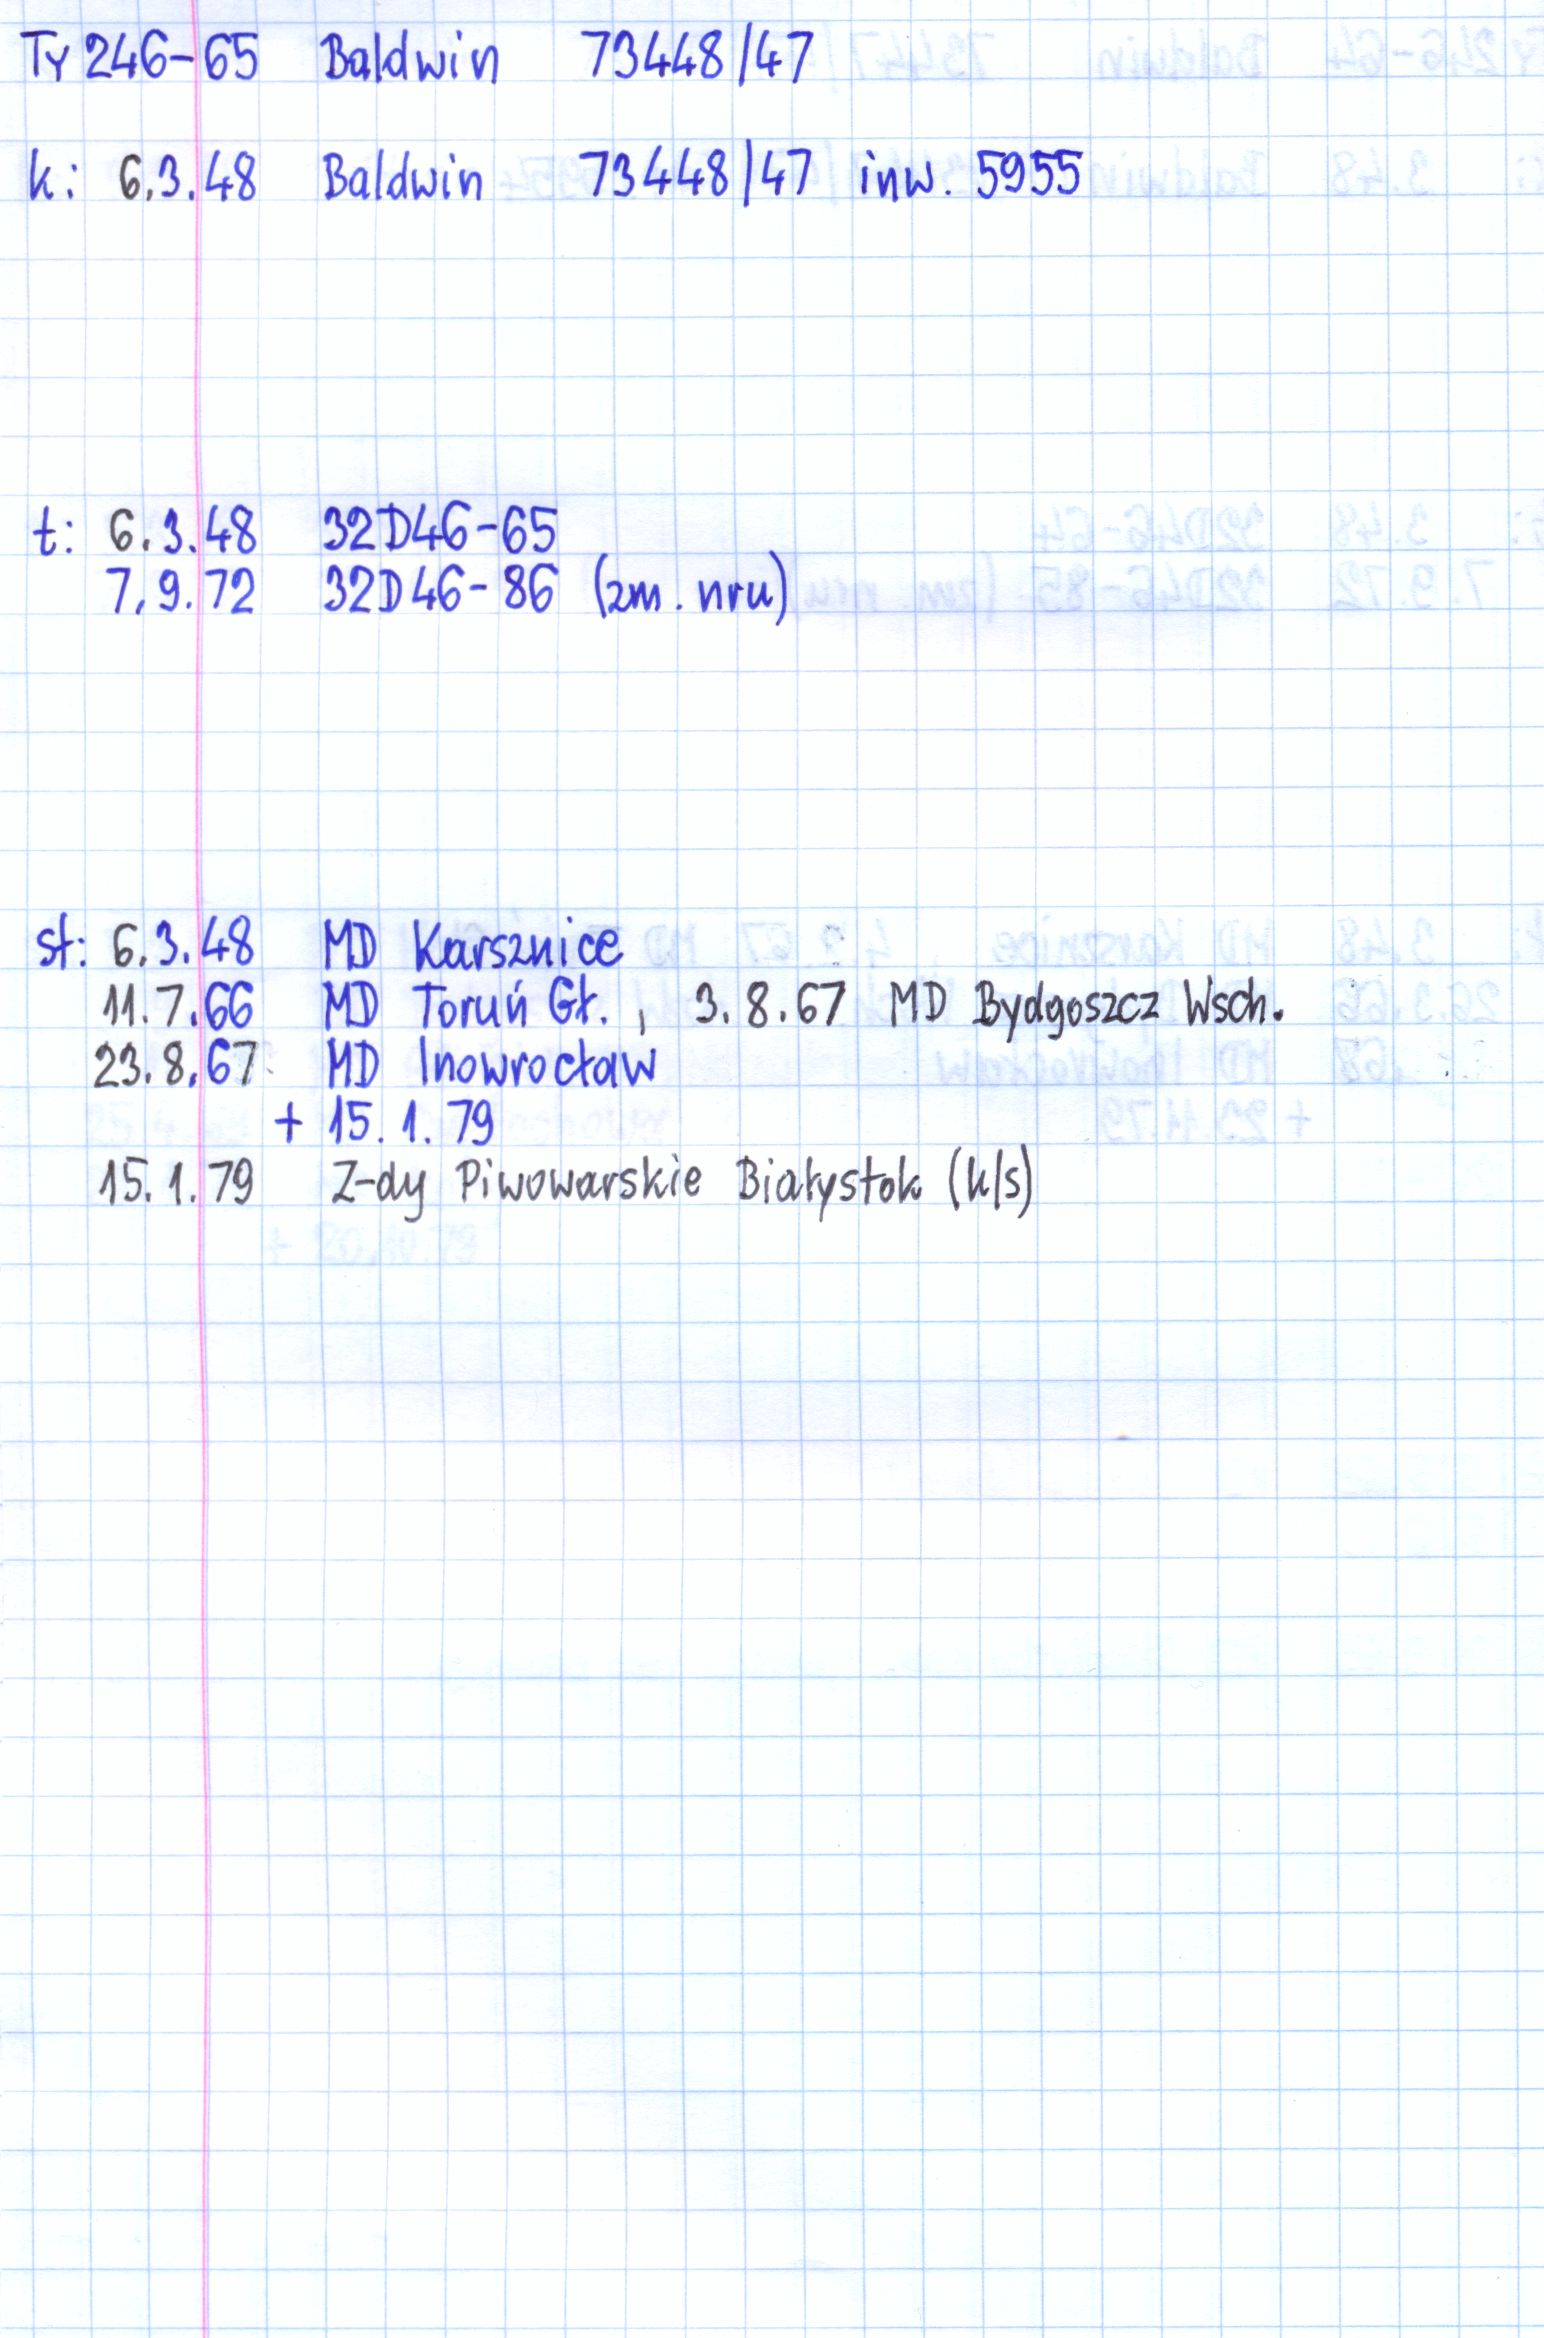 Ty 246-65 Baldwin 73448/47
k: 6.3.48 Baldwin 73448/47 inw. 5955
t: 6.3.48 32D46-65
7.9.72 32D46-86 (zm. nru)
st: 6.3.48 MD Karsznice
11.7.66 MD Toruń Gł., 3.8.67 MD Bydgoszcz Wsch.
23.8.67 MD Inowrocław
+ 15.1.79
15.1.79 Z-dy Piwowarskie Białystok (k/s)